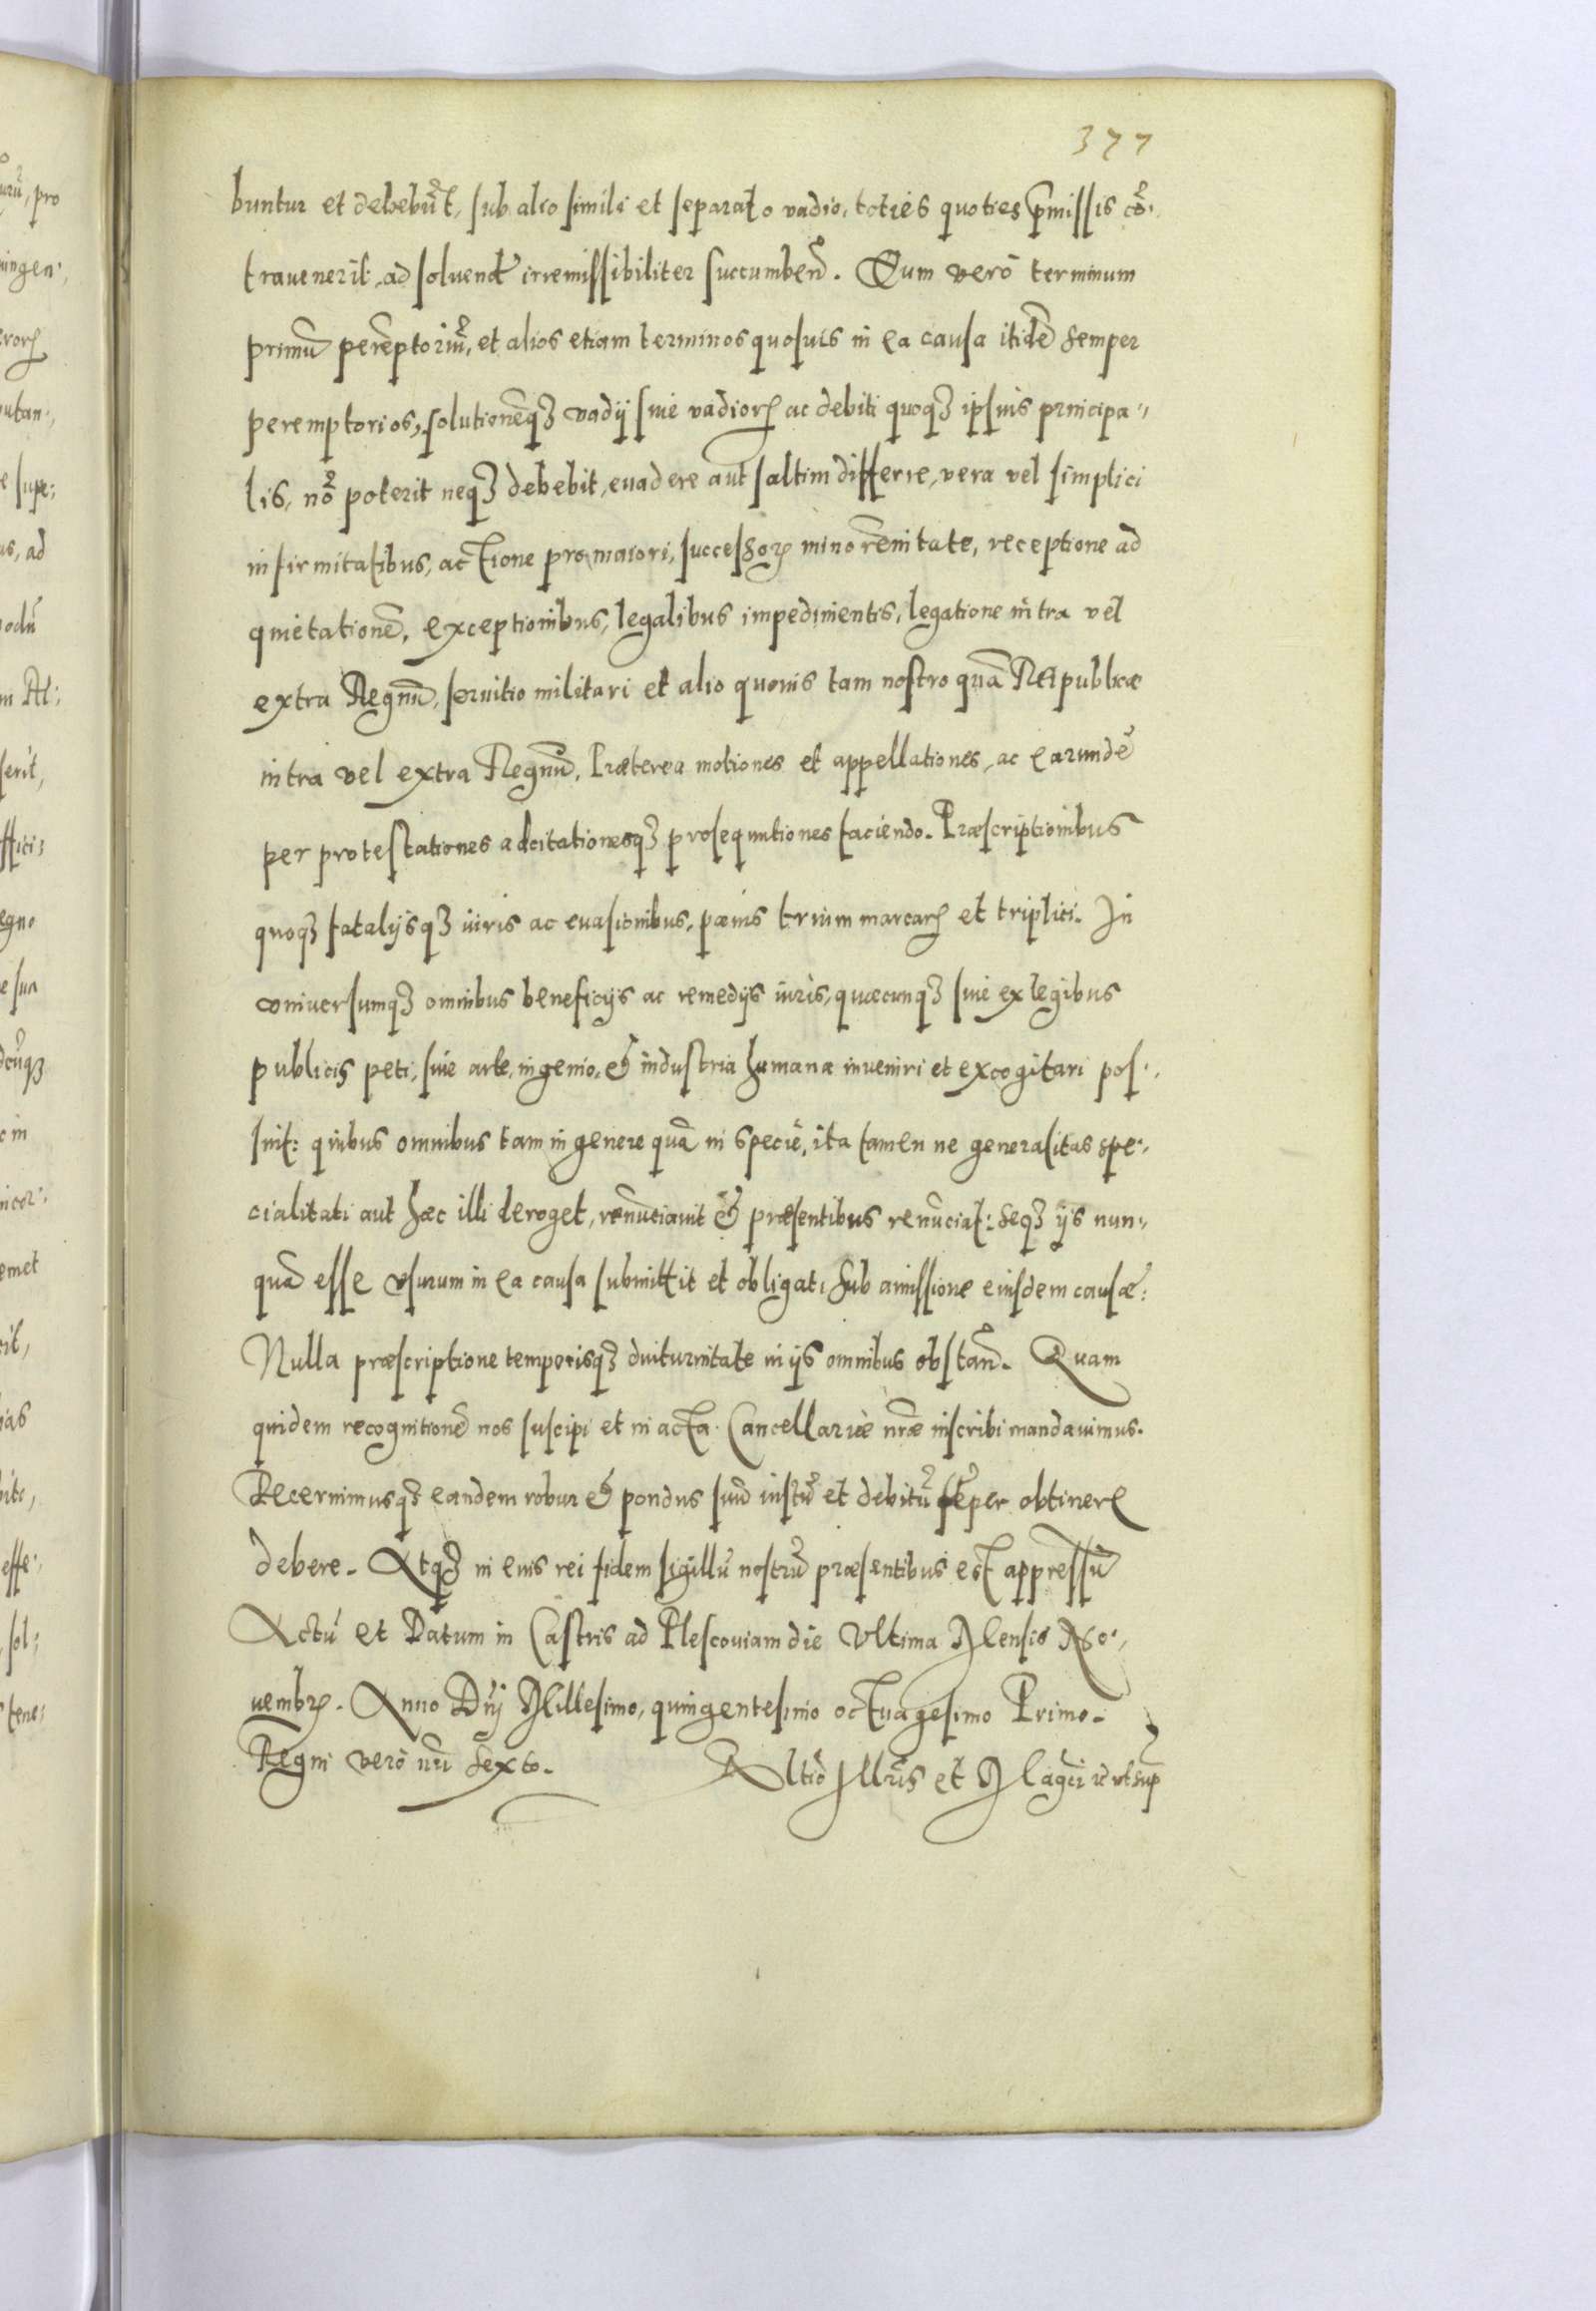 377
buntur et debebūt, sub alio simili et separato vadio, toties quoties p̄missis cō-
travenerit, ad soluend irremissibiliter succumben̄. Cum verò terminum
primū perēptoriū, et alios etiam terminos quosuis in ea causa itidē semper
peremptorios, solutionēq₃ vadij siue vadiorꝝ ac debiti quoq₃ ipsius principa-
lis, nō poterit neq₃ debebit, euadere aut saltim differre, vera vel simplici
infirmitatibus, actione pro maiori, successorꝝ minorēnitate, receptione ad
quietationē, exceptionibus, legalibus impedimentis, legatione intra vel
extra Regnū, seruitio militari et alio quouis tam nostro quā Reipublicæ
intra vel extra Regnū, Præterea motiones et appellationes, ac earundē
per protestationes adcitationesq₃ prosequutiones faciendo. Præscriptionibus
quoq₃ fatalijsq₃ iuris ac euasionibus, pœnis trium marcarꝝ et triplici. In
vniuersumq₃ omnibus beneficijs ac remedijs iuris, quæcunq₃ siue ex legibus
publicis peti, siue arte, ingenio, & industria humana inveniri et excogitari pos-
sint: quibus omnibus tam in genere quā in specie, ita tamen ne generalitas spe-
cialitati aut hæc illi deroget, renūciauit & præsentibus renūciat: seq₃ ijs nun-
quā esse vsurum in ea causa submittit et obligat, sub amissione eiusdem causæ:
Nulla præscriptione temporisq₃ diuturnitate in ijs omnibus obstan̄. Quam
quidem recognitionē nos suscipi et in acta Cancellariæ nr̄æ inscribi mandauimus.
Decernimusq₃ eandem robur & pondus suū iustū et debitū sēper obtinere
debere. Atq₃ in eius rei fidem sigillū nostrū præsentibus est appressū
Actū et Datum in Castris ad Plescouiam die Vltima Mensis No-
uembrꝭ. Anno Dn̄j Millesimo, quingentesimo octuagesimo Primo.
Regni verò nr̄i sexto. Rltiō Jllrīs et Magcī ... vt sup̄